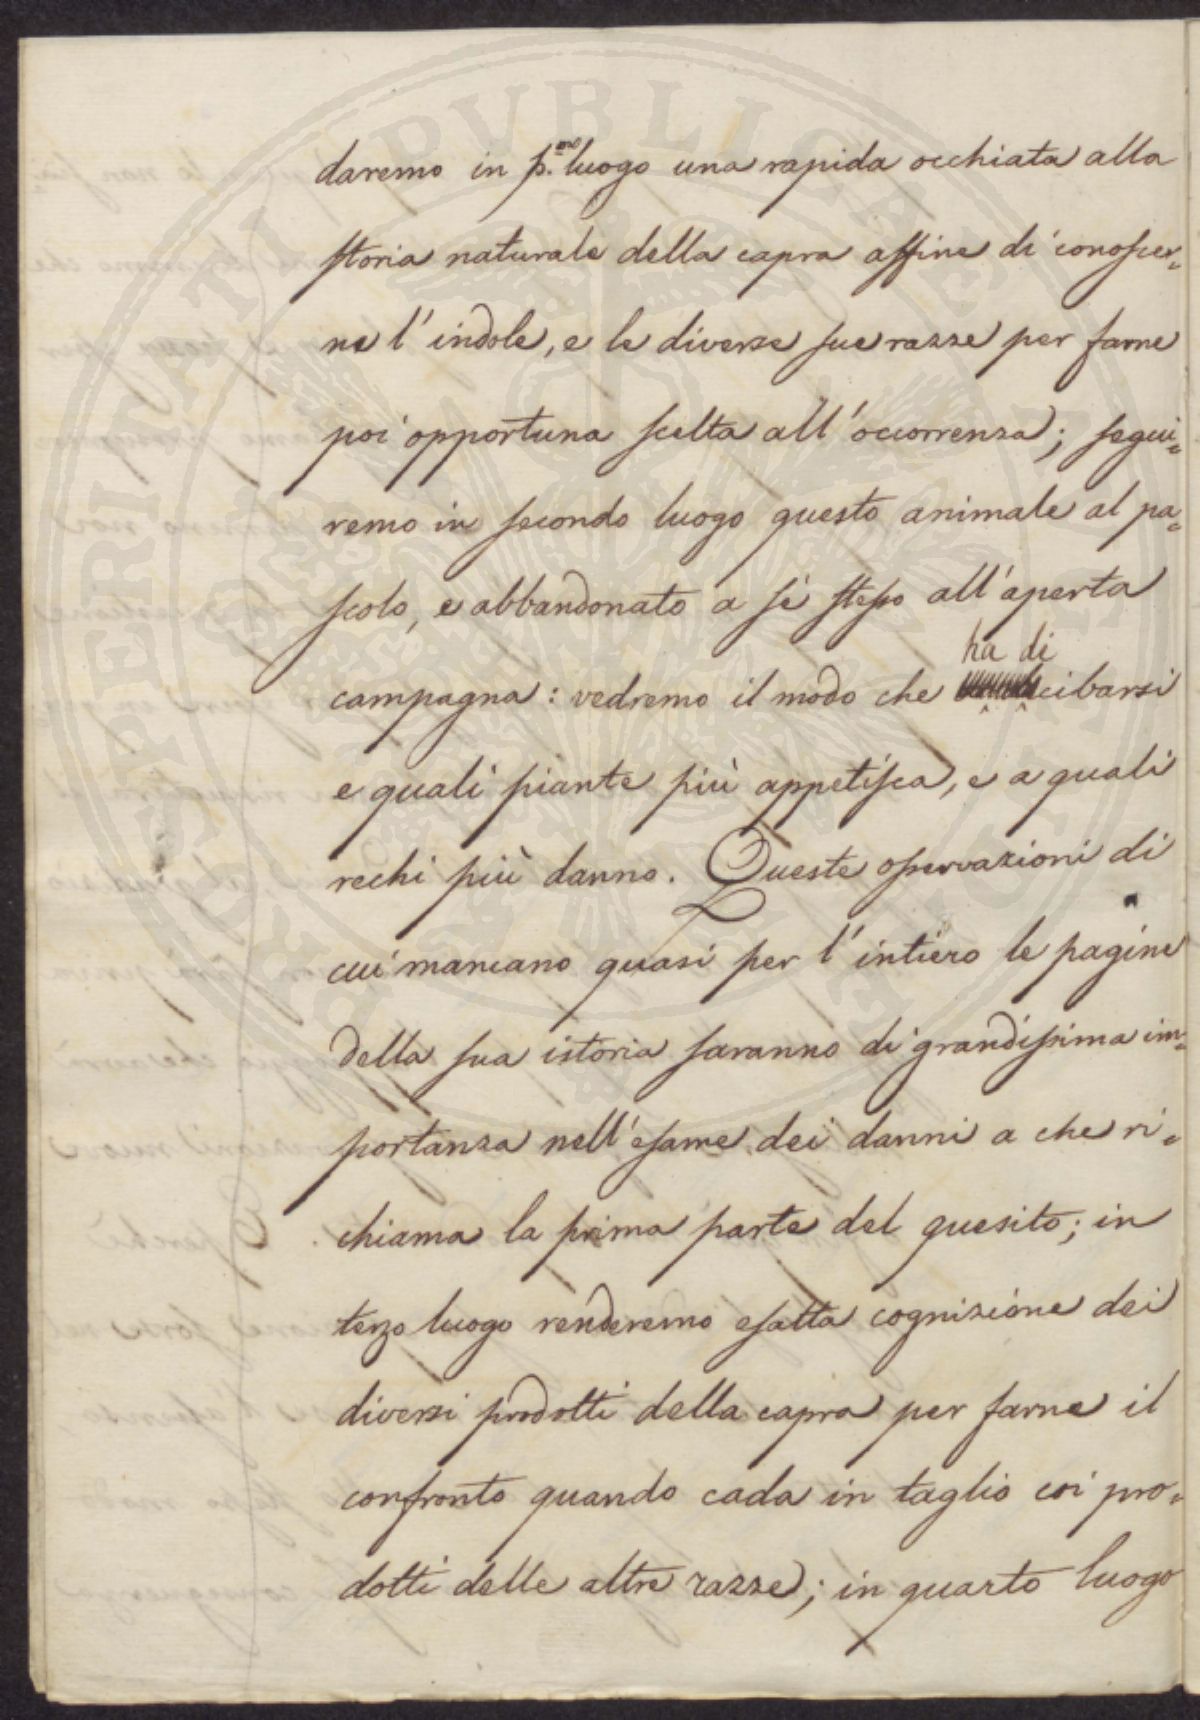 daremo in p.mo luogo una rapida occhiata alla
storia naturale della capra affine di conoscer=
ne l'indole, e le diverse sue razze per farne
poi opportuna scelta all'occorrenza; segui=
remo in secondo luogo questo animale al pa=
scolo, e abbandonato a sè stesso all'aperta
ha di
campagna: vedremo il modo che cibarsi
e quali piante più appetisca, e a quali
rechi più danno. Queste osservazioni di
cui mancano quasi per l'intiero le pagine
della sua istoria saranno di grandissima im=
portanza nell'esame dei danni a che ri=
chiama la prima parte del quesito; in
terzo luogo renderemo esatta cognizione dei
diversi prodotti della capra per farne il
confronto quando cada in taglio coi pro=
dotti delle altre razze; in quarto luogo